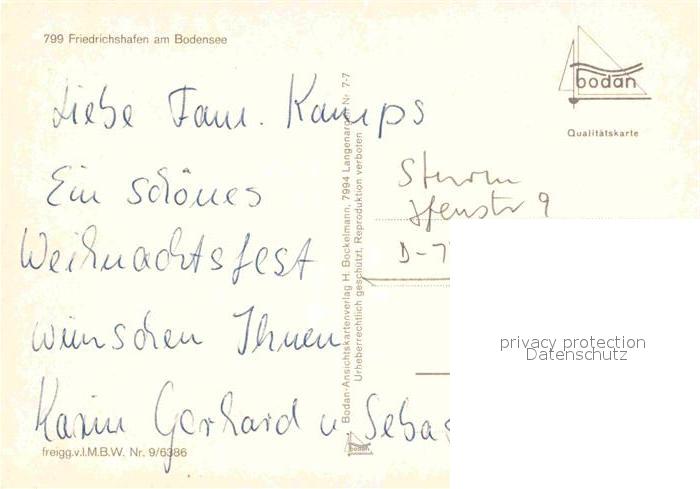 799 Friedrichshafen am Bodensee
bodan
Qualitätskarte
Liebe Fam. Kamps
Ein schönes
Weihnachtsfest
wünschen Ihnen
Karin Gerhard u. Sebas
Sturm
9
D-7
Bodan-Ansichtskartenverlag H. Bockelmann, 7994 Langenargen Nr. 7-7
Urheberrechtlich geschützt, Reproduktion verboten
bodan
freigg.v.I.M.B.W. Nr. 9/6386
privacy protection
Datenschutz